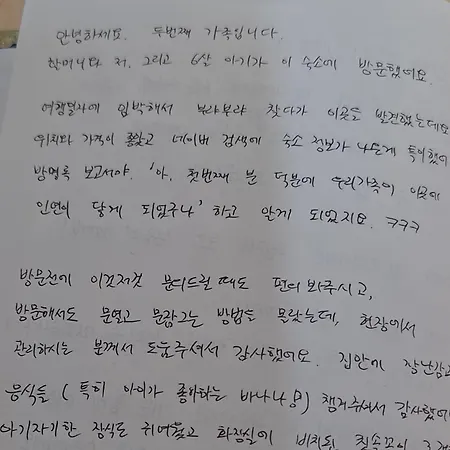 안녕하세요. 두번째 가족입니다.
할머니와 저, 그리고 6살 아기가 이 숙소에 방문했어요.
여행날짜에 임박해서 부랴부랴 찾다가 이곳을 발견했는데요
위치와 가격이 좋았고 네이버 검색에 숙소 정보가 나온게 특이했
방명록 보고서야, '아, 첫번째 분 덕분에 우리가족이 이곳에
인연이 닿게 되었구나' 하고 알게 되었지요. ㅋㅋㅋ
방문전에 이것저것 문의드릴 때도 편의 봐주시고,
방문해서도 문열고 문잠그는 방법을 몰랐는데, 현장에서
관리하시는 분께서 도움주셔서 감사했어요. 집안에 장난감과
음식들 (특히 아이가 좋아하는 바나나!) 챙겨주셔서 감사했
아기자기한 장식도 귀여웠고 화장실이 비치된 칫솔꽂이